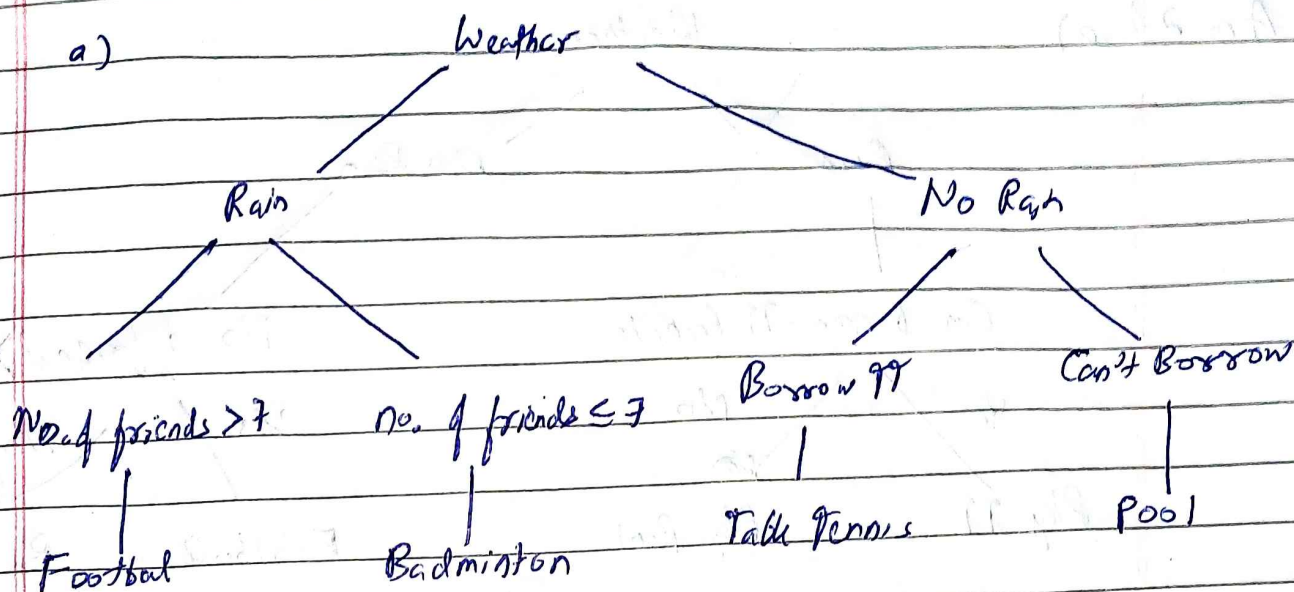 a)
Weather
Rain
No Rain
No. of friends > 7
no. of friends ≤ 7
Borrow TT
Can't Borrow
Footbal
Badminton
Table Tennis
Pool